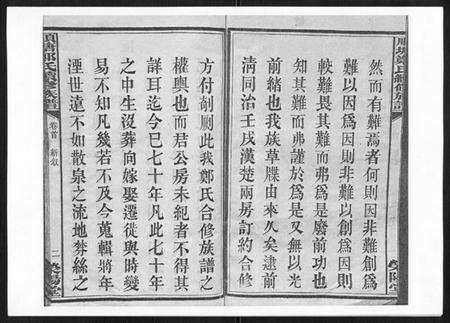 然而有難焉者何則因非難創爲
難以因爲因則非難以創爲因則
較難畏其難而弗爲是廢前功也
知其難而弗謹於爲是又無以光
前緒也我族草牒由來久矣逮前
淸同治壬戌漢楚兩房訂約合修
方付剞劂此我鄭氏合修族譜之
權輿也而君公房未紀者不得其
詳耳迄今已七十年凡此七十年
之中生沒葬向嫁娶遷徙與時變
易不知凡幾若不及今蒐輯將年
湮世遠不如散泉之流地棼絲之
卷首 新敍
二